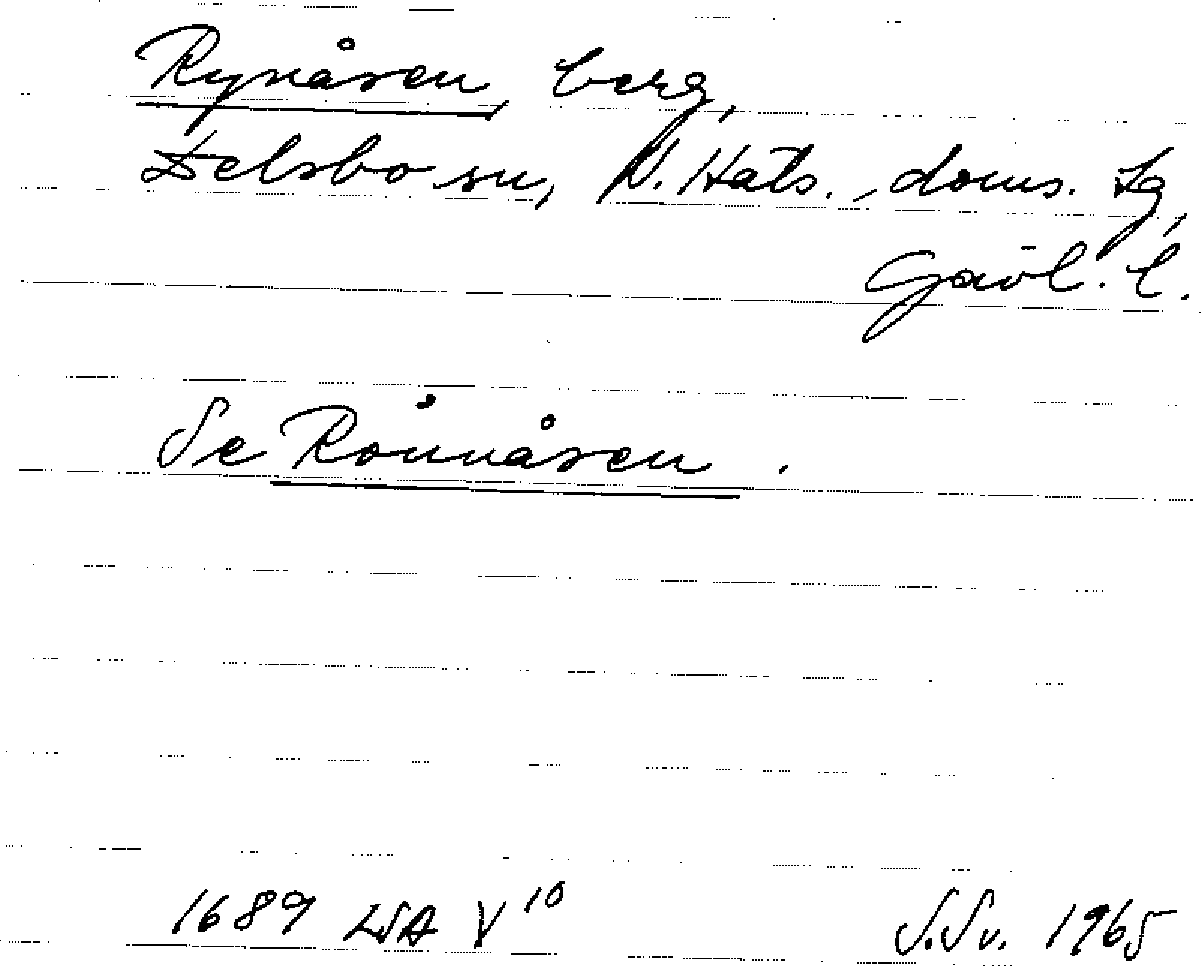 Rynåsen, berg,
Delsbo sn, N. Häls. doms. tg,
Gävl. l.
Se Rönnåsen.
1689 LSA V 10
S.Sv. 1965